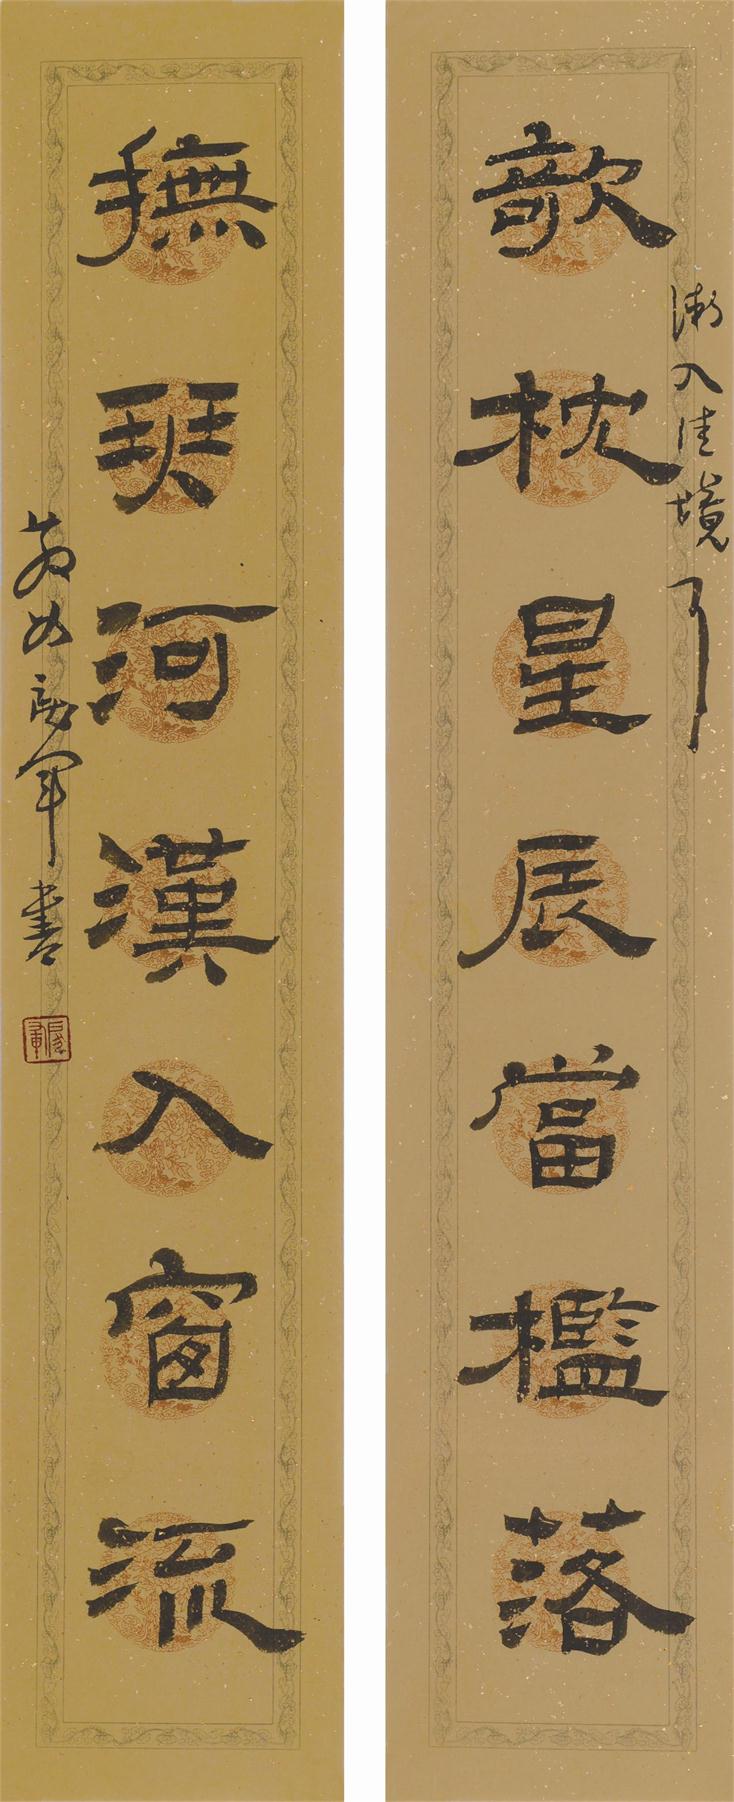 漸入佳境
欹枕星辰當檻落
撫琴河漢入窗流
軍書